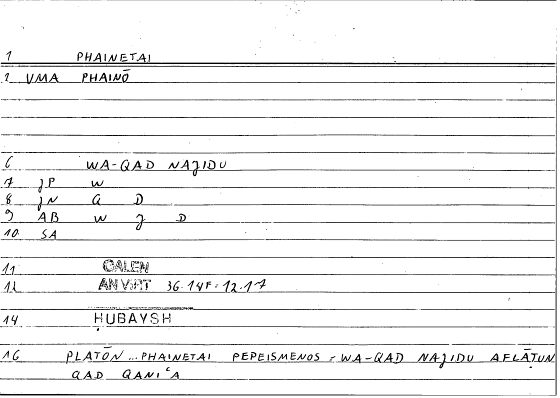 1 PHAINETAI
2 VMA PHAINŌ
6 WA-QAD NAJIDU
7 JP W
8 JN Q D
9 AB W J D
10 SA
11 GALEN
12 AN VIRT 36.14F = 12.17
14 ḤUBAYSH
16 PLATŌN ... PHAINETAI PEPEISMENOS = WA-QAD NAJIDU AFLĀṬUN
QAD QANIʿA